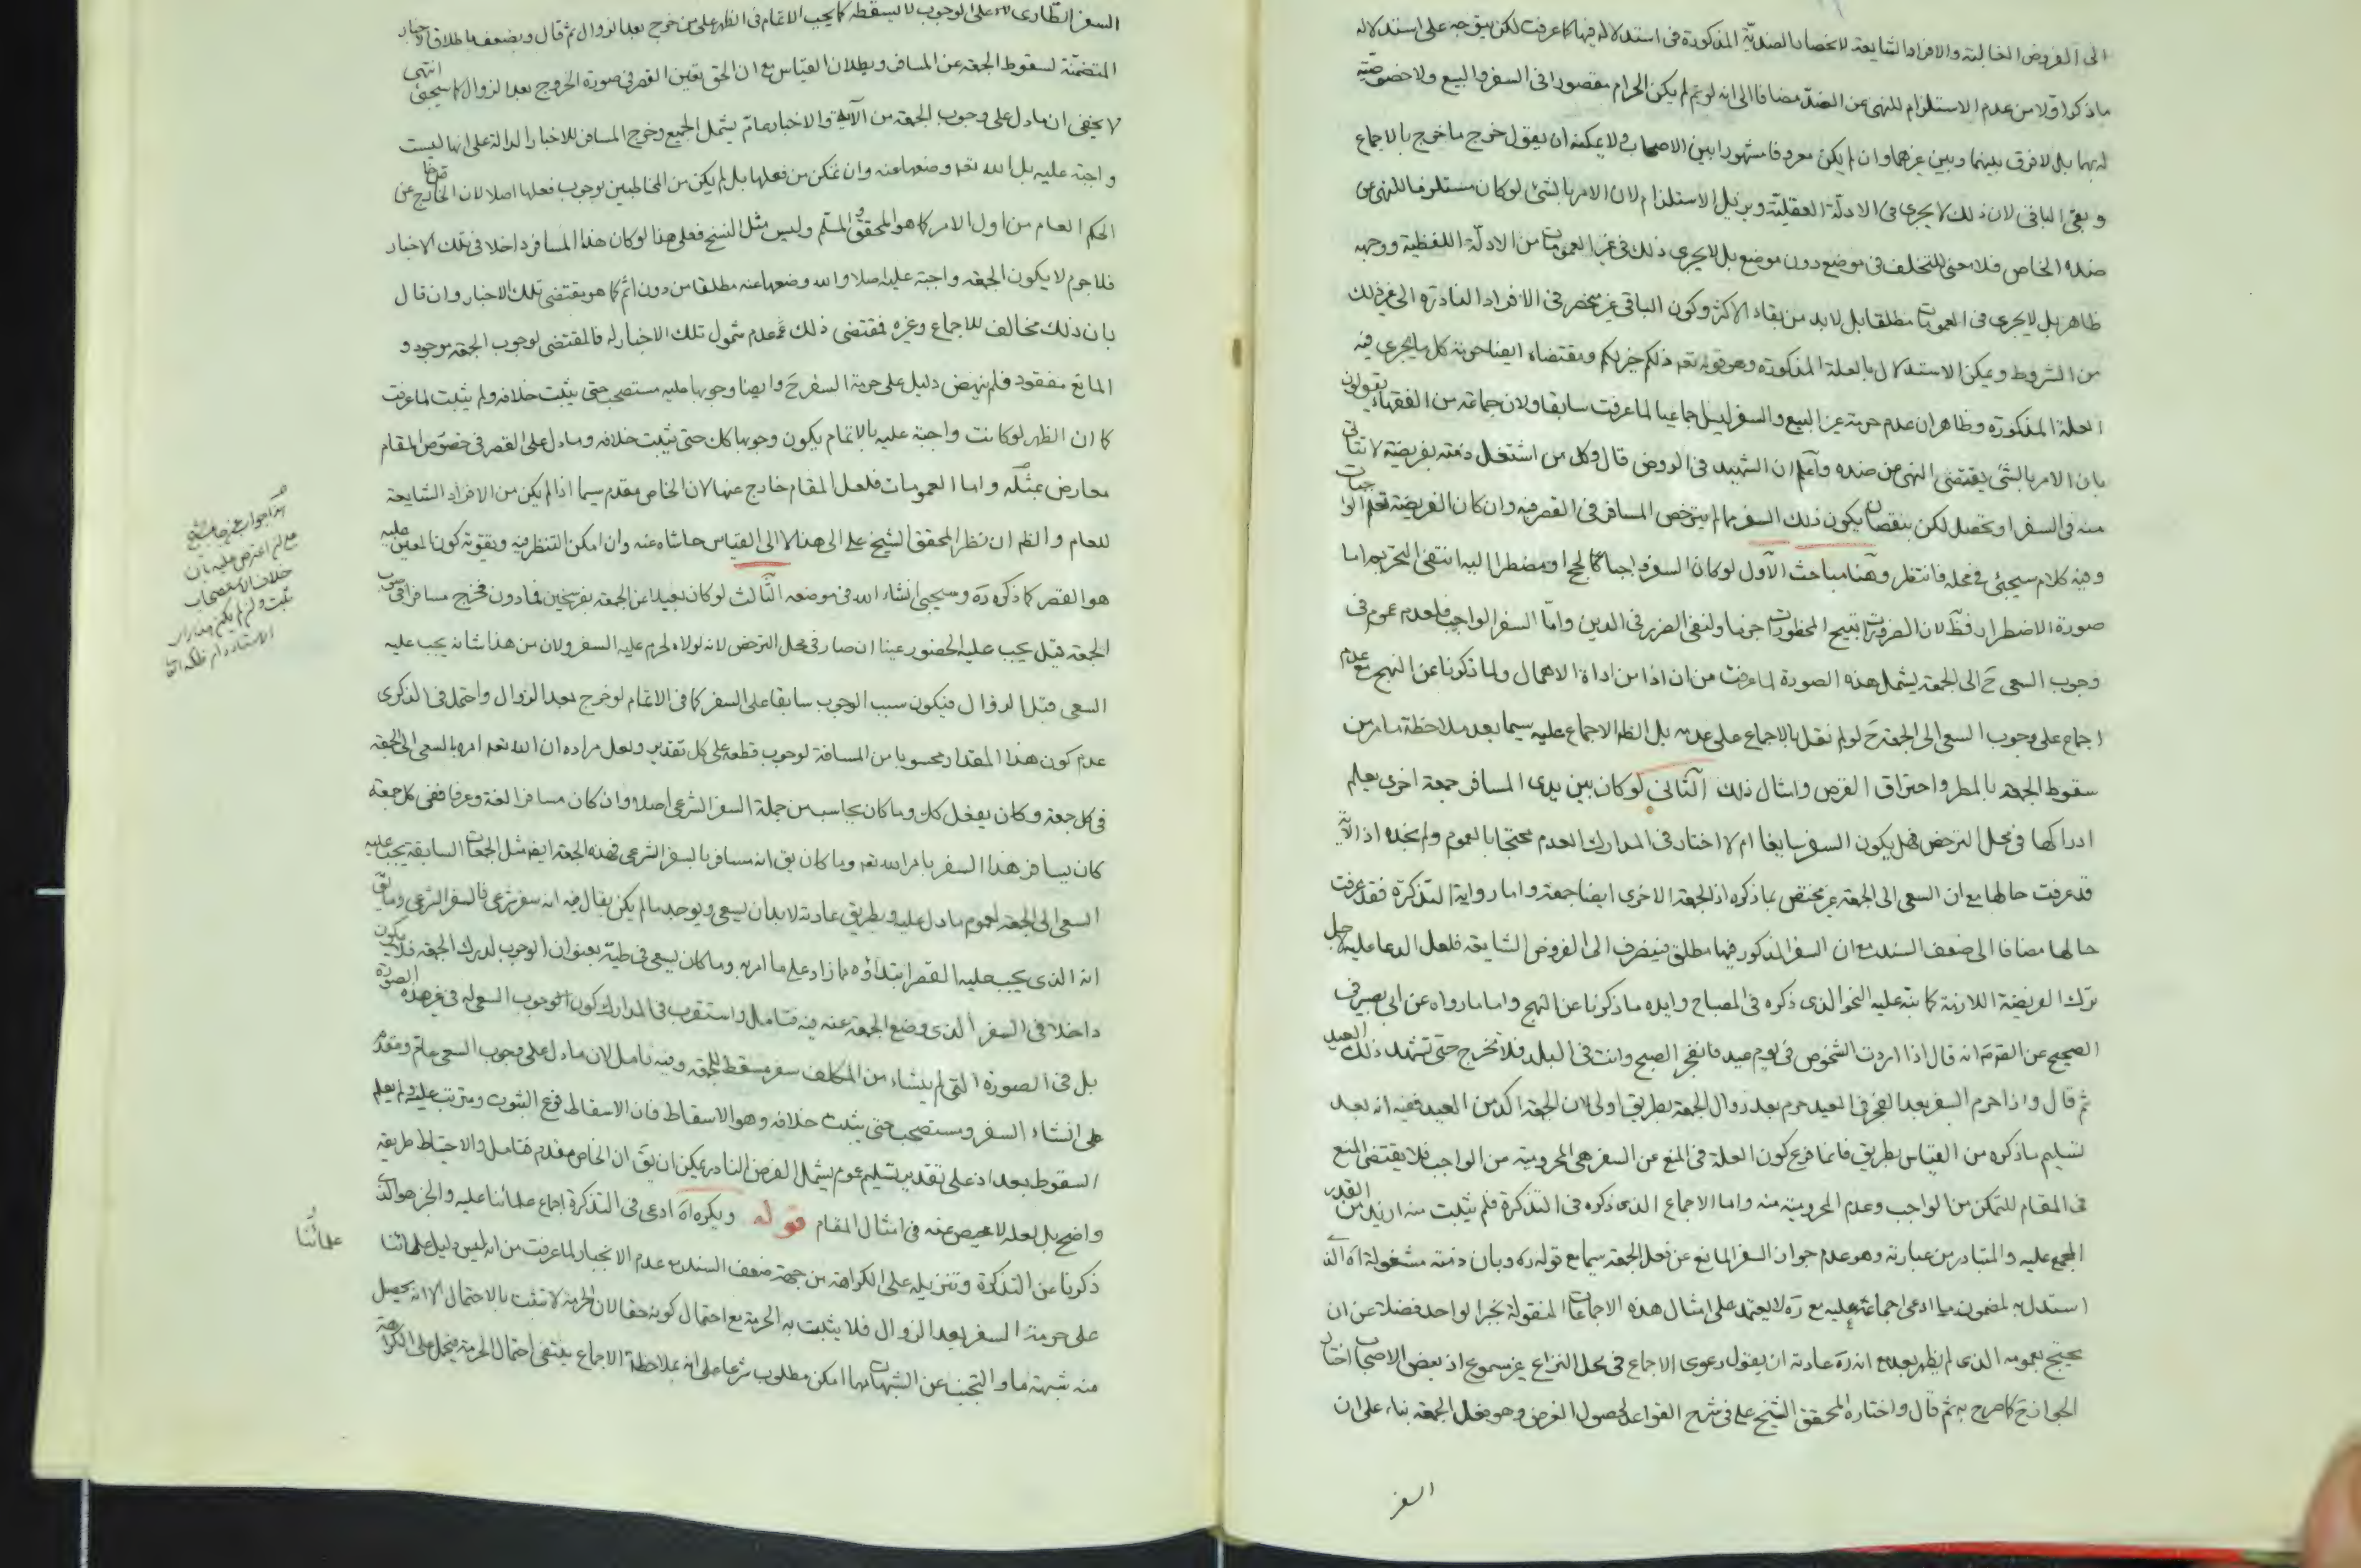 الى الفروض الغالبة والافراد الشايعة لا بخصاب الضدية المذكورة فى استدلاله فيها كما عرفت لكن يتوجه على استدلاله
ما ذكرا ولا من عدم الاستلزام للنهى عن الضد مضافا الى انه لو تم لم يكن الحرام مقصورا فى السفر والبيع ولا خصوصية
له بهما بل لا فرق بينهما وبين غيرهما وان لم يكن معروفا مشهورا بين الاصحاب ولا يمكنه ان يقول خرج ما خرج بالاجماع
وبقى الباقى لان ذلك لا يجرى فى الادلة العقلية ويزيل الاستلزام لان الامر بالشئ لو كان مستلزما للنهى عن
ضده الخاص فلا معنى للتخلف فى موضع دون موضع بل لا يجرى ذلك فى غير العمومات من الادلة اللفظية ووجهه
ظاهر بل لا يجرى فى العمومات مطلقا بل لا بد من بقاء الاكثر وكون الباقى غير منحصر فى الافراد النادرة الى غير ذلك
من الشروط ويمكن الاستدلال بالعلة المذكورة وهو قوله تعه ذلكم خير لكم ومقتضاه ايضا حرمة كل ما يجرى فيه
العلة المذكورة وظاهر ان عدم حرمة غير البيع والسفر ليس اجماعيا لما عرفت سابقا ولان جماعة من الفقهاء يقولون
بان الامر بالشئ يقتضى النهى عن ضده واعلم ان الشهيد فى الروض قال وكل من اشتغل ذمته بفريضة لا تتاتى
منه فى السفر او تحصل لكن بنقصان يكون ذلك السفر مما لم يترخص المسافر فى القصر فيه وان كان الفريضة تعلم الواجبات
وفيه كلام سيجئ فى محله فانتظر وهنا مباحث الاول لو كان السفر واجبا كالحج او مضطرا اليه انتفى التحريم اما
صورة الاضطرار فظ لان الضرورات تبيح المحظورات جزما ولنفى الضرر فى الدين واما السفر الواجب فلعدم عموم فى
وجوب السعى ح الى الجمعة يشمل هذه الصورة لما عرفت من ان اذا من اداة الاهمال ولما ذكرنا عن النهج مع عدم
اجماع على وجوب السعى الى الجمعة ح لو لم نقل بالاجماع على عدمه بل الظ الاجماع عليه سيما بعد ملاحظة ما مر من
سقوط الجمعة بالمطر واحتراق القرص وامثال ذلك الثانى لو كان بين يدى المسافر جمعة اخرى يعلم
ادراكها فى محل الترخص فهل يكون السفر سايغا ام لا اختار فى المدارك العدم محتجا بالعموم ولم نجده اذ الآية
قد عرفت حالها مع ان السعى الى الجمعة غير مختص بما ذكره اذ الجمعة الاخرى ايضا جمعة واما رواية التذكرة فقد عرفت
حالها مضافا الى ضعف السند مع ان السفر المذكور فيها مطلق فينصرف الى الفروض الشايعة فلعل الدعا عليه لاجل
ترك الفريضة اللازمة كما نبه عليه النحو الذى ذكره فى المصباح وايده ما ذكرنا عن النهج واما ما رواه عن ابى بصير فى
الصحيح عن الص ع انه قال اذا اردت الشخوص فى يوم عيد فانفجر الصبح وانت فى البلد فلا تخرج حتى تشهد ذلك العيد
ثم قال واذا حرم السفر بعد الفجر فى العيد حرم بعد زوال الجمعة بطريق اولى لان الجمعة اكد من العيد ففيه انه بعد
تسليم ما ذكره من القياس بطريق فانما فرع كون العلة فى المنع عن السفر هى المحرومية من الواجب فلا يقتضى المنع
فى المقام للتمكن من الواجب وعدم المحرومية منه واما الاجماع الذى ذكره فى التذكرة فلم يثبت منه ازيد من القدر
المجمع عليه والمتبادر من عبارته وهو عدم جواز السفر المانع عن فعل الجمعة سيما مع قوله ره وبان ذمته مشغولة اه الذى
استدل به لمضمون ما ادعى اجماعه عليه مع ره لا يعتمد على امثال هذه الاجماعات المنقولة بخبر الواحد فضلا عن ان
يحتج بعمومه الذى لم يظهر بعد مع انه ره عادته ان يقول دعوى الاجماع فى محل النزاع غير مسموع اذ بعض الاصحاب اختار
الجواز ح كما صرح به ثم قال واختاره المحقق الشيخ على فى شرح القواعد لحصول الغرض وهو فعل الجمعة بناء على ان
السفر
السفر الطارى على الوجوب لا يسقطه كما يجب الاتمام فى الظهر على من خرج بعد الزوال ثم قال ويضعف باطلاق الاخبار
المتضمنة لسقوط الجمعة عن المسافر وبطلان القياس مع ان الحق تعين القصر فى صورة الخروج بعد الزوال كما سيجئ انتهى
لا يخفى ان ما دل على وجوب الجمعة من الآية والاخبار عام يشمل الجميع وخرج المسافر للاخبار الدالة على انها ليست
واجبة عليه بل الله تعه وضعها عنه وان تمكن من فعلها بل لم يكن من المخاطبين بوجوب فعلها اصلا لان الخارج عن
الحكم العام من اول الامر كما هو المحقق والمسلم وليس مثل النسخ فعلى هذا لو كان هذا المسافر داخلا فى تلك الاخبار
فلا جرم لا يكون الجمعة واجبة عليه اصلا والله وضعها عنه مطلقا من دون اثم كما هو مقتضى تلك الاخبار وان قال
بان ذلك مخالف للاجماع وغيره فمقتضى ذلك عدم شمول تلك الاخبار له فالمقتضى لوجوب الجمعة موجود و
المانع مفقود فلم ينهض دليل على حرمة السفر ح وايضا وجوبها عليه مستصحب حتى يثبت خلافه ولم يثبت لما عرفت
كما ان الظهر لو كانت واجبة عليه بالاتمام يكون وجوبها كك حتى يثبت خلافه وما دل على القصر فى خصوص المقام
معارض بمثله واما العمومات فلعل المقام خارج عنها لان الخاص مقدم سيما اذا لم يكن من الافراد الشايعة
للعام والظم ان نظر المحقق الشيخ على الى هذا لا الى القياس حاشاه عنه وان امكن التنظر فيه ويقوته كون المعين عليه
هو القصر كما ذكره ره وسيجيئ انشاء الله فى موضعه الثالث لو كان بعيدا عن الجمعة بفرسخين فما دون فخرج مسافرا فى صوب
الجمعة قيل يجب عليه الحضور عينا ان صار فى محل الترخص لانه لولاه لحرم عليه السفر ولان من هذا شانه يجب عليه
السعى قبل الزوال فيكون سبب الوجوب سابقا على السفر كما فى الاتمام لو خرج بعد الزوال واحتمل فى الذكرى
عدم كون هذا المقدار محسوبا من المسافة لوجوب قطعه على كل تقدير ولعل مراده ان الله تعه امر بالسعى الى الجمعة
فى كل جمعة وكان يفعل كك وما كان يحاسب من جملة السفر الشرعى اصلا وان كان مسافرا لغة وعرفا ففى كل جمعة
كان يسافر هذا السفر بامر الله تعه وما كان يق انه مسافر بالسفر الشرعى فهذه الجمعة ايضا مثل الجمعات السابقة يجب عليه
السعى الى الجمعة لعموم ما دل عليه وبطريق عادته لا بد ان يسعى ويوجد ما لم يكن يقال فيه انه سفر شرعى فالسفر الشرعى وما يق
انه الذى يجب عليه القصر ابتداؤه مما زاد على ما امر به وما كان يسعى فى طيه بعنوان الوجوب لدرك الجمعة فلا يكون
داخلا فى السفر الذى وضع الجمعة عنه فيه فتامل واستقرب فى المدارك كون الوجوب السعى له فى غير هذه الصورة
بل فى الصورة التى لم ينشاء من المكلف سفر مسقط للجمعة وفيه تامل لان ما دل على وجوب السعى عام ومقدم
على انشاء السفر ومستصحب حتى يثبت خلافه وهو الاسقاط فان الاسقاط فرع الثبوت ومترتب عليه ولم يعلم
السقوط بعد اذ على تقدير تسليم عموم يشمل الفرض النادر يمكن ان يق ان الخاص مقدم فتامل والاحتياط طريقه
واضح بل لعله لا محيص عنه فى امثال المقام قوله ويكره اه ادعى فى التذكرة اجماع علمائنا عليه والخبر هو الذى
ذكرنا عن التذكرة وتنزيله على الكراهة من جهة ضعف السند مع عدم الانجبار لما عرفت من انه ليس دليل علمائنا
على حرمة السفر بعد الزوال فلا يثبت به الحرمة مع احتمال كونه حقا لان الحرمة لا تثبت بالاحتمال الا انه يحصل
منه شبهة ما والتجنب عن الشبهات مهما امكن مطلوب شرعا على انه بملاحظة الاجماع ينتفى احتمال الحرمة فيحمل على الكراهة
علمائنا